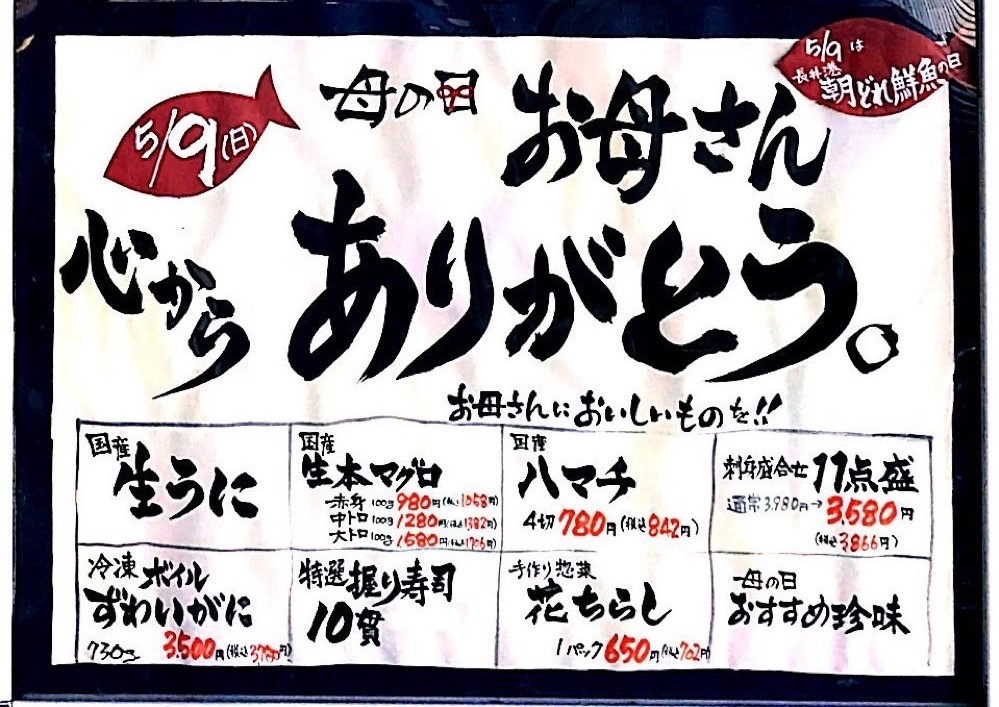 5/9は
長井港
朝どれ鮮魚の日
5/9(日)
母の日
お母さん
心から
ありがとう。
お母さんにおいしいものを!!
国産
生うに
国産
生本マグロ
赤身100g980円(税込1058円)
中トロ100g1280円(税込1382円)
大トロ100g1580円(税込1706円)
国産
ハマチ
4切780円(税込842円)
刺身盛合せ11点盛
通常3.980円→3.580円
(税込3866円)
冷凍ボイル
ずわいがに
730g 3.500円(税込3780円)
特選握り寿司
10貫
手作り惣菜
花ちらし
1パック650円(税込702円)
母の日
おすすめ珍味